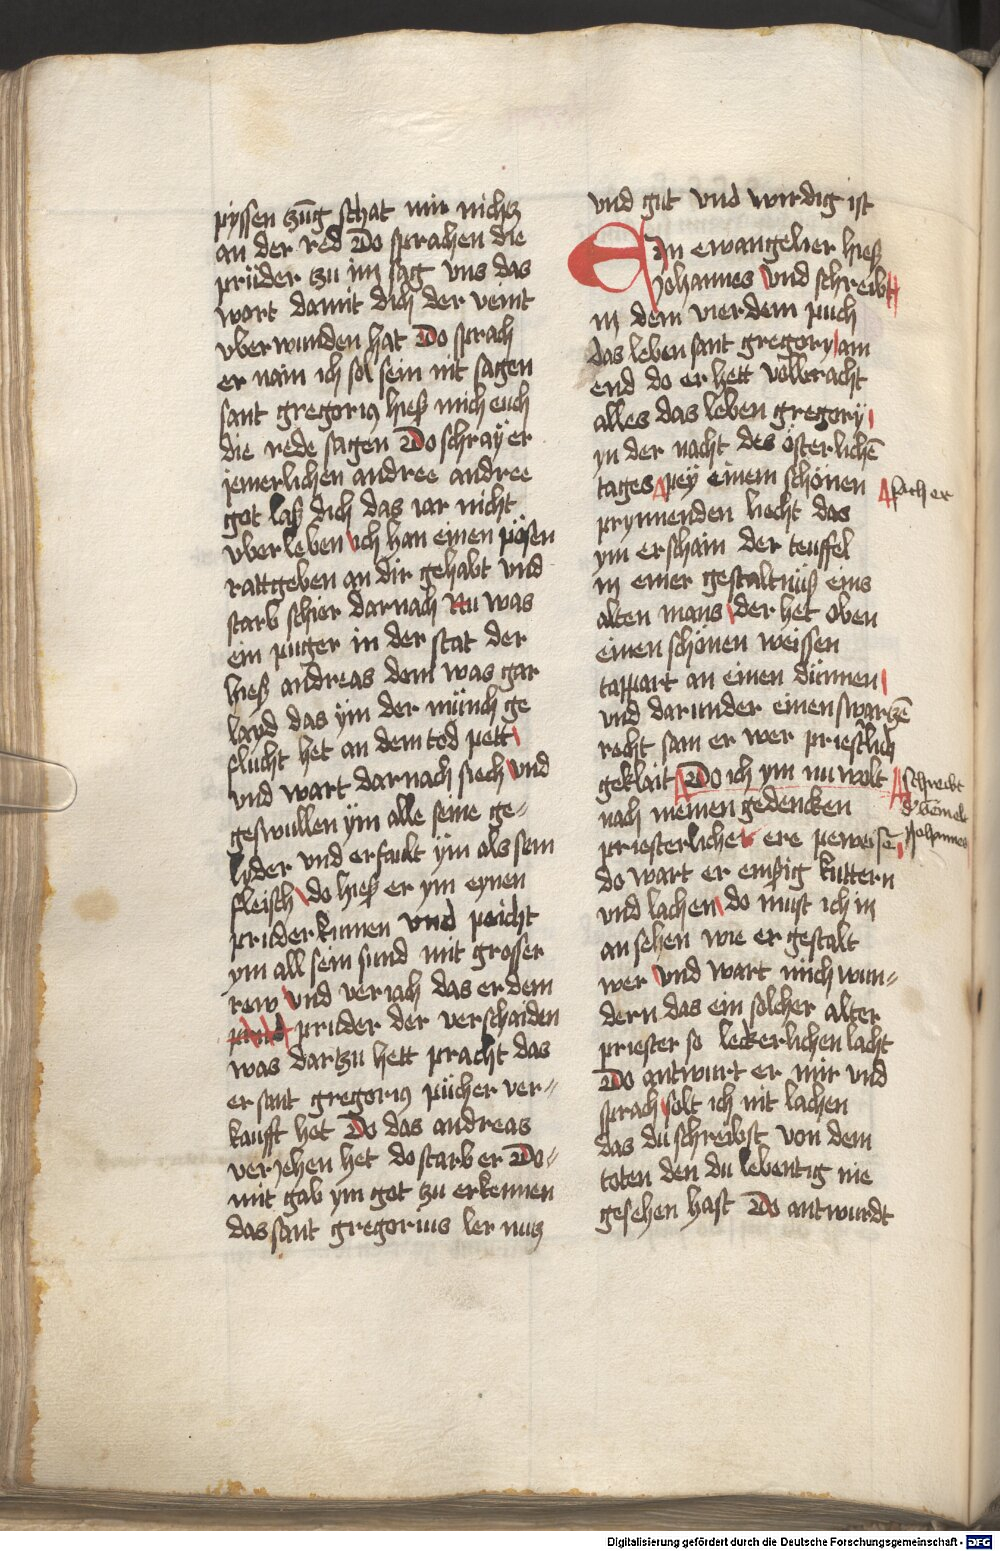 pyssen zūg schat mir nichtz
an der red Do sprachen die
prüder zu im sag vns das
wort damit dich der veint
vberwunden hat Do sprach
er nain ich sol sein nit sagen
sant gregorius hieß mich euch
die rede sagen Do schray er
jemerlichen andree andree
got laß dich das iar nicht
vberleben ich han einen pösen
rattgeben an dir gehabt vnd
starb schier darnach Nu was
ein puger in der stat der
hieß andreas dem was gar
layd das ym der münch ge
flucht het an dem tod pett
vnd wart darnach siech vnd
geswullen ym alle seine ge-
lyder vnd erfault ym als sein
fleisch do hieß er ym eynen
prüder kumen vnd peicht
ym all sein sund mit grosser
rew vnd verjach das er dem
prüder der verschaiden
was dartzu hett pracht das
er sant gregorius pücher ver-
kaufft het Do das andreas
verjehen het do starb er Do-
mit gab ym got zu erkennen
das sant gregorius ler nutz
vnd gut vnd wirdig ist
Ein ewangelier hieß
Johannes vnd schreibt
in dem vierdem puch
das leben sant gregory am
end do er hett volbracht
alles das leben gregory
yn der nacht des österlichē
tages pey einem schönen
sach er
prynnenden liecht das
ym erschain der teuffel
in einer gestaltnüß eins
alten mans der het oben
einen schönen weissen
tappart an einen dünnen
vnd darunder einen swartzē
recht sam er wer priestlich
geklait Do ich ym nu wolt
schreibt
Johannes
nach meinen gedencken
priesterlicher ere peweisē
do wart er empzig kuttern
vnd lachen do must ich in
an sehen wie er gestalt
wer vnd wart mich wun-
dern das ein solcher alter
priester so leckerlichen lacht
Do antwurt er mir vnd
sprach solt ich nit lachen
das du schreibst von dem
toten den du lebentig nie
gesehen hast Do antwurdt
Digitalisierung gefördert durch die Deutsche Forschungsgemeinschaft - DFG